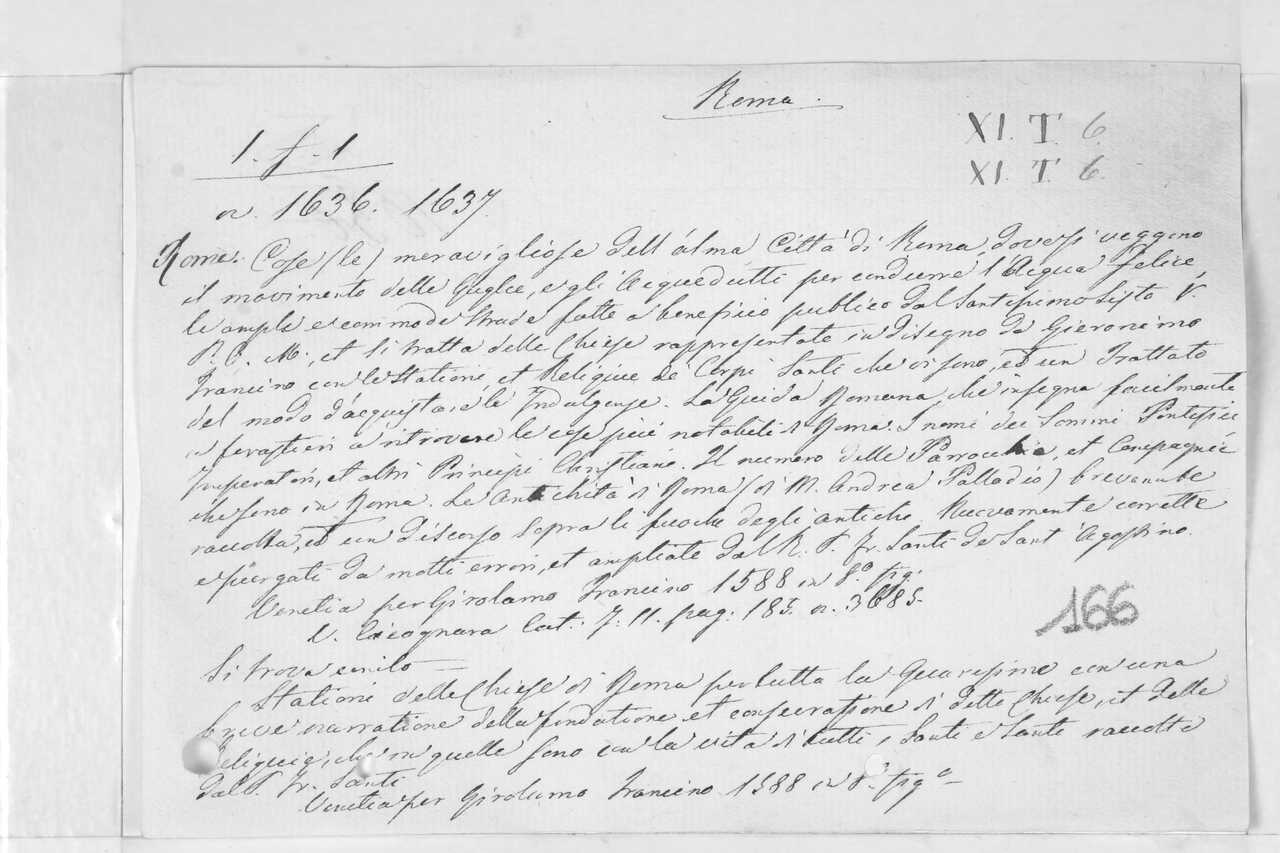 Roma
XI. T. 6.
XI. T. 6.
1. f. 1
n. 1636. 1637.
Roma. Cose (le) meravigliose dell'alma Città di Roma, dove si veggono
il movimento delle Guglie, e gli Acquedutti per condurre l'Acqua felice,
le ample e commode strade fatte a beneficio publico dal Santissimo Sisto V.
P. O. M., et si tratta delle Chiese rappresentate in disegno da Gieronimo
Francino con le Stationi, et Reliquie de' Corpi Santi che vi sono, et un Trattato
del modo d'acquistare le Indulgenze. La Guida Romana, che insegna facilmente
a forastieri a ritrovare le cose più notabili di Roma. I nomi dei Sommi Pontefici
Imperatori, et altri Principi Christiani. Il numero delle Parrocchie, et Compagnie
che sono in Roma. Le Antichità di Roma (di M. Andrea Palladio) brevemente
raccolta, et un discorso sopra li fuochi degli antichi. Nuovamente corrette
e purgati da molti errori, et ampliate dal R. P. Fr. Santi de Sant Agostino.
Venetia per Girolamo Francino 1588 in 8.º fig.
V. Cicognara Cat. T. 11. pag. 185. n. 3685.
166
Si trova unito —
Stationi delle Chiese di Roma per tutta la Quaresima con una
breve narratione della fondatione et consecratione di dette Chiese, et delle
Reliquie, che in quelle sono con la vita di tutti i Santi e Sante raccolte
dal P. Fr. Santi
Venetia per Girolamo Francino 1588 in 8.º fig.º